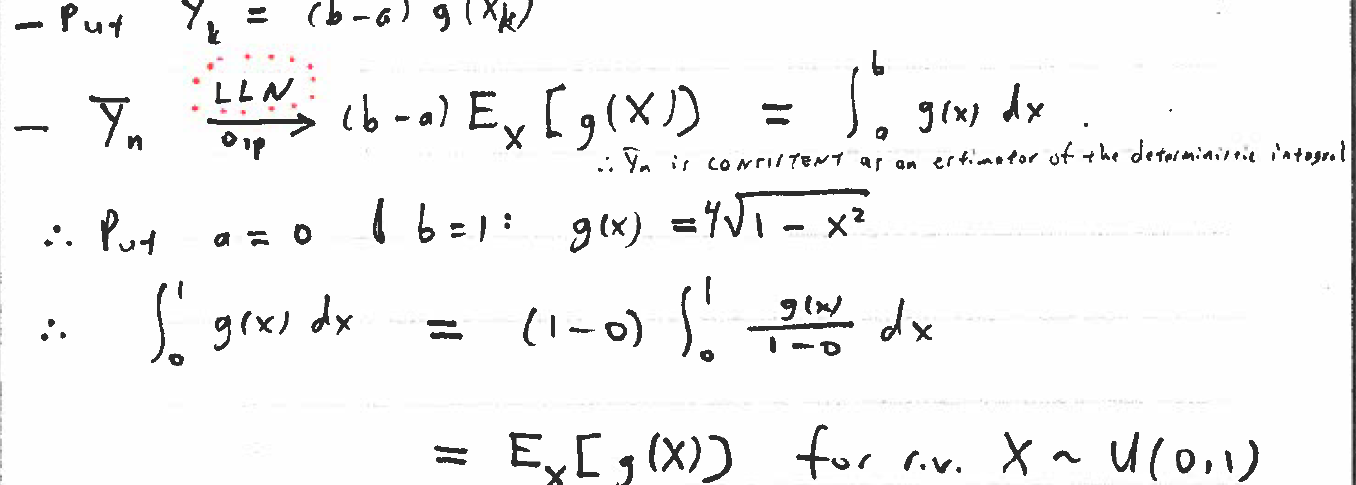 – Put Y_k = (b-a) g(X_k)
LLN
– Ȳ_n → (b-a) E_X [g(X)] = ∫_a^b g(x) dx .
in p
∴ Ȳ_n is CONSISTENT as an estimator of the deterministic integral
∴ Put a = 0 & b = 1 : g(x) = 4√(1 - x²)
∴ ∫_0^1 g(x) dx = (1-0) ∫_0^1 g(x)/(1-0) dx
= E_X [g(X)] for r.v. X ~ U(0,1)